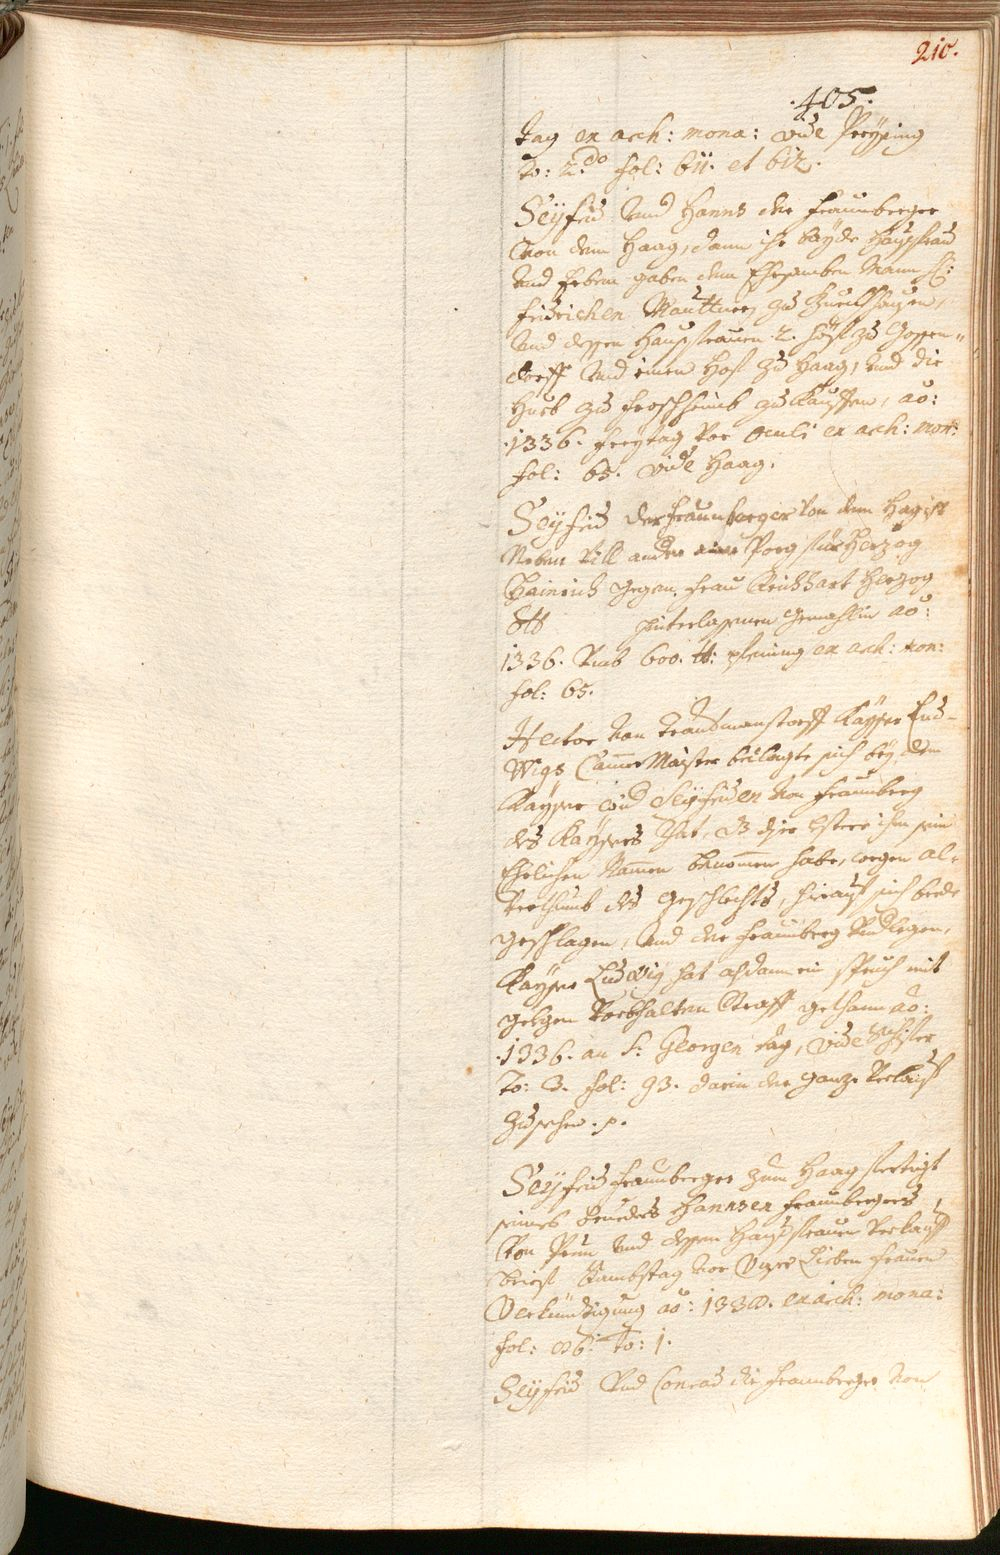 210.
.405.
tag ex arch: mona: vide Preÿsing
To: 2.do fol: 611. et 612.
Seÿfrid vnd Hanns die Fraunberger
von dem Haag, dann ihr baÿde Haußfrau
vnd Erben gaben dem Ehrsamben Mann H:
Fridrichen Mauttner zu
vnd dessen Haußfrauen 2. höf zu
dorff vnd einen Hof zu Haag, vnd die
Hueb zu Froschheimb zu Kauffen, ao:
.1336. Freÿtag vor Oculi ex arch: mon:
fol: 65. vide Haag.
Seÿfrid der Fraunberger von dem Hag ist
Neben vill ander Porg für Herzog
Hainrich gegen Frau Reichhart Herzog
Ott hinterlassenen Gemahlin ao:
1336. vmb 600. lb: pfening ex arch: mon:
fol: 65.
Hector von Trautmanstorff Kaÿser Lud-
Wigs Camer Maister beclagte sich beÿ dem
Kaÿser wid Seÿfriden von Fraunberg
des Kaÿsers Rat, dz diser ihm sein
Ehrlichen Namen benommen habe, wegen al-
terthumb des Geschlechts, hierauf sich bede
geschlagen, vnd der Fraunberg
Kaÿser Ludwig hat alsdann ein spruch mit
vorbhalten Straff gethann ao:
.1336. an S: Georgen tag, vide
To: 3. fol: 93. darin der ganze Verlauff
zusehen .p.
Seÿfrid Fraunberger zum Haag fertigt
seines Brueders Hannsen Fraunbergers
von Prun vnd dessen Haußfrauen Verkauff
brief Sambstag vor Vnser Lieben Frauen
Verkündtigung ao: ex arch: mona:
fol: To: 1.
Seÿfrid vnd Conrad die Fraunberger von